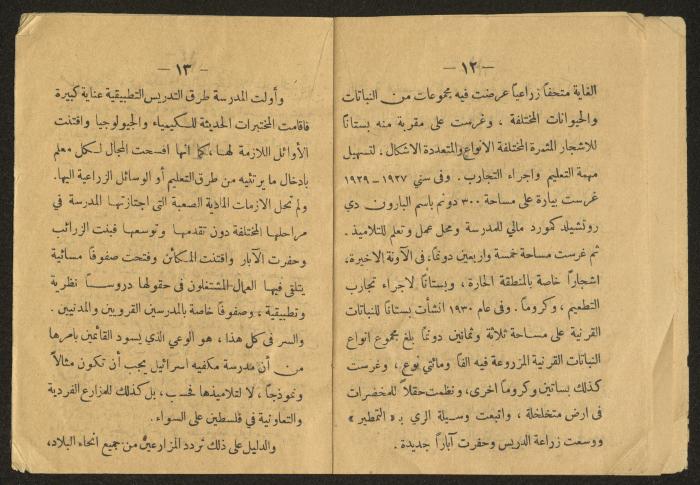 — ١٢ —
الغاية متحفاً زراعياً عرضت فيه مجموعات من النباتات
والحيوانات المختلفة ، وغرست على مقربة منه بستاناً
للاشجار المثمرة المختلفة الانواع والمتعددة الاشكال ، لتسهيل
مهمة التعليم واجراء التجارب . وفى سني ١٩٢٧ – ١٩٢٩
غرست بيارة على مساحة ٣٠٠ دونم باسم البارون دي
روتشيلد كمورد مالي للمدرسة ومحل عمل وتعلم للتلاميذ .
ثم غرست مساحة خمسة واربعين دونماً، فى الآونة الاخيرة،
اشجاراً خاصة بالمنطقة الحارة ، وبستاناً لاجراء تجارب
التطعيم ، وكروماً . وفى عام ١٩٣٠ انشأت بستاناً للنباتات
القرنية على مساحة ثلاثة وثمانين دونماً بلغ مجموع انواع
النباتات القرنية المزروعة فيه الفاً ومائتي نوع ، وغرست
كذلك بساتين وكروماً اخرى ، ونظمت حقلاً للمخضرات
فى ارض متخلخلة ، واتبعت وسيلة الري بـ « التمطير »
ووسعت زراعة الدريس وحفرت آباراً جديدة .
— ١٣ —
وأولت المدرسة طرق التدريس التطبيقية عناية كبيرة
فاقامت المختبرات الحديثة للكيمياء والجيولوجيا واقتنت
الأوائل اللازمة لها ، كما انها افسحت المجال لكل معلم
بادخال ما يرتئيه من طرق التعليم أو الوسائل الزراعية اليها.
ولم تحل الازمات المادية الصعبة التى اجتازتها المدرسة في
مراحلها المختلفة دون تقدمها وتوسعها فبنت الزرائب
وحفرت الآبار واقتنت المكائن وفتحت صفوفاً مسائية
يتلقى فيها العمال المشتغلون فى حقولها دروساً نظرية
وتطبيقية ، وصفوفاً خاصة بالمدرسين القرويين والمدنيين .
والسر فى كل هذا ، هو الوعي الذي يسود القائمين بامرها
من أن مدرسة مكفيه اسرائيل يجب أن تكون مثالاً
ونموذجاً ، لا لتلاميذها فحسب، بل كذلك للمزارع الفردية
والتعاونية في فلسطين على السواء .
والدليل على ذلك تردد المزارعين من جميع انحاء البلاد،